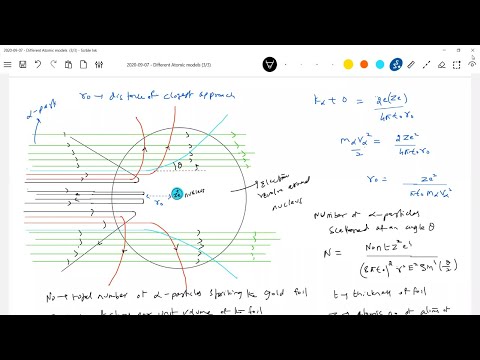 2020-09-07 - Different Atomic models (3/3) - Scrble Ink
2020-09-07 - Different Atomic models (3/3)
r₀ → distance of closest approach
α-part
θ
r₀
Ze
nucleus
Electron
revolve around
nucleus
Kα + 0 = 2e(Ze) / 4πε₀r₀
mαVα² / 2 = 2Ze² / 4πε₀r₀
r₀ = Ze² / πε₀mαVα²
Number of α-particles
scattered at an angle θ
N = N₀ntZ²e⁴ / (8πε₀)² r² E² Sin⁴(θ/2)
N₀ → total number of α-particles striking the gold foil
t → thickness of foil
per unit volume of the foil
Z → atomic no of